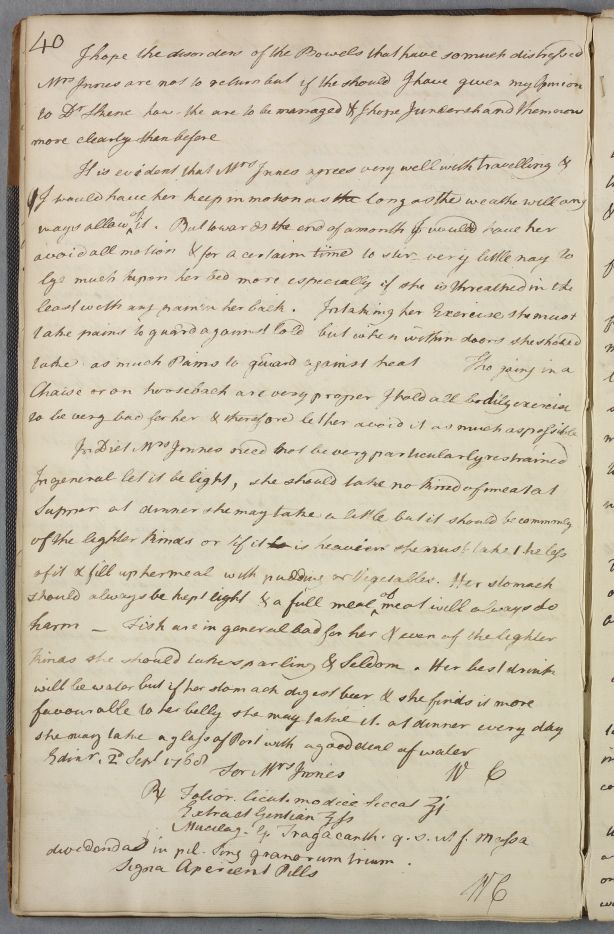 40
I hope the disorders of the Bowels that have so much distressed
Mrs Innes are not to return but if the should I have given my Opinion
to Dr Skene how the are to be managed & I hope I understand them now
more clearly than before
It is evident that Mrs Innes agrees very well with travelling &
I would have her keep in motion as the long as the weathe will any
ways allow of it. But towards the end of a month I would have her
avoid all motion & for a certain time to stir very little nay to
lye much upon her bed more especially if she is threatned in the
least with any pain in her back. In taking her Exercise she must
take pains to guard against Cold but when within doors she should
take as much Pains to guard against heat Tho going in a
Chaise or on horseback are very proper I hold all bodily exercise
to be very bad for her & therefore let her avoid it as much as possible
In Diet Mrs Innes need not be very particularly restrained
In general let it be light, she should take no kind of meat at
Supper at dinner she may take a little but it should be commonly
of the lighter kinds or if it is heavier she must take the less
of it & fill up her meal with pudding or Vegetables. Her stomach
should always be kept light & a full meal of meat will always do
harm — Fish are in general bad for her & even of the lighter
kinds she should take sparling & Seldom. Her best drink
will be water but if her stomach digest beer & she finds it more
favourable to her belly she may take it. at dinner every day
she may take a glass of Port with a good deal of water
Edinr. 2d Sept 1768
For Mrs Innes W C
℞ Folior. Cicut. modice siccat ʒi
Extract Gentian ʒss
Mucilag. G Tragacanth. q. s. ut f. Massa
dividenda in pil. sing granorum trium.
Signa Aperient Pills
WC